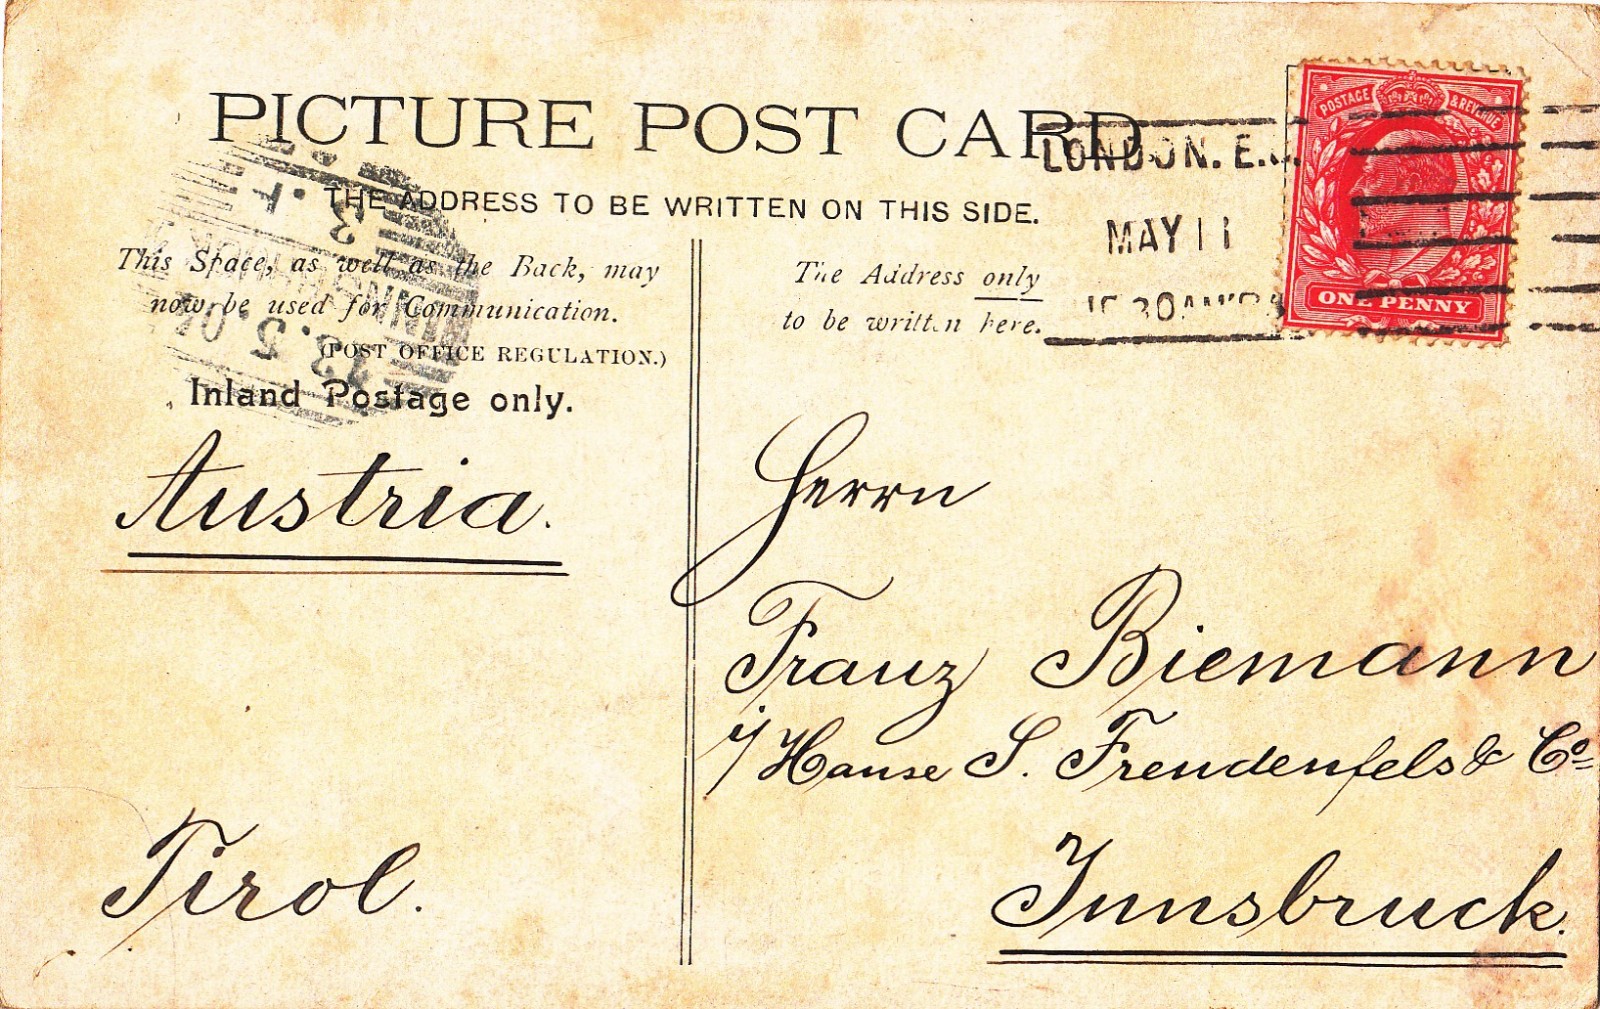 PICTURE POST CARD
THE ADDRESS TO BE WRITTEN ON THIS SIDE.
This Space, as well as the Back, may
now be used for Communication.
(POST OFFICE REGULATION.)
Inland Postage only.
The Address only
to be written here.
LONDON. E.
MAY 11
POSTAGE & REVENUE
ONE PENNY
INNSBRUCK
13.5.
Austria.
Tirol.
Herrn
Franz Biemann
i/ Hause S. Freudenfels & Co
Innsbruck.